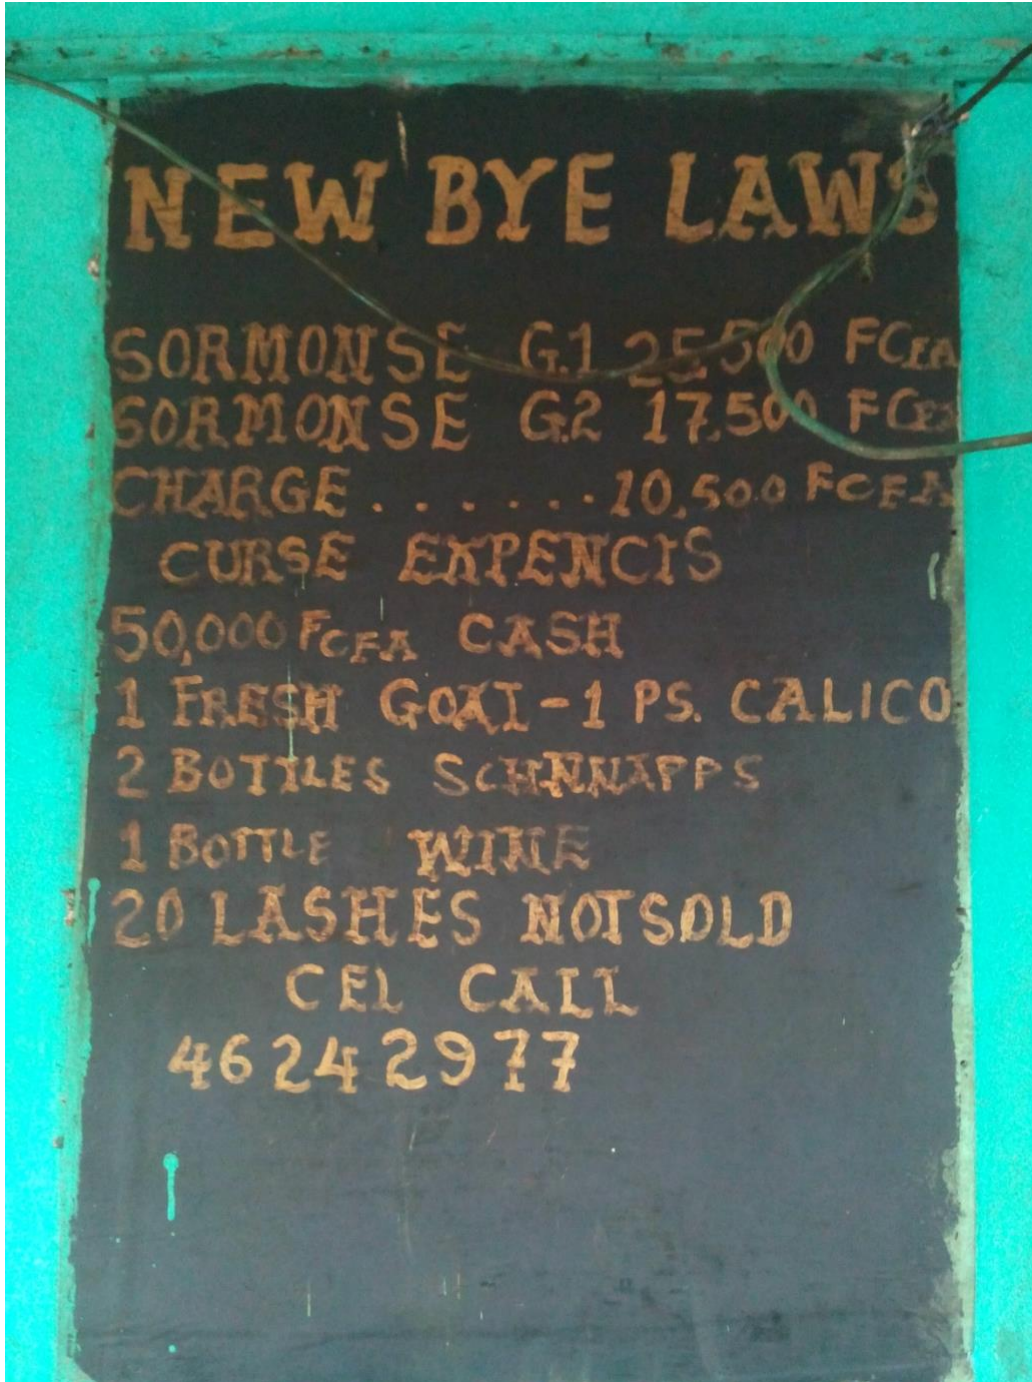 NEW BYE LAWS
SORMONSE G.1 25,500 FCFA
SORMONSE G.2 17,500 FCFA
CHARGE . . . . . . 10,500 FCFA
CURSE EXPENCIS
50,000 FCFA CASH
1 FRESH GOAT - 1 PS. CALICO
2 BOTTLES SCHNNAPPS
1 BOTTLE WINE
20 LASHES NOT SOLD
CEL CALL
46242977